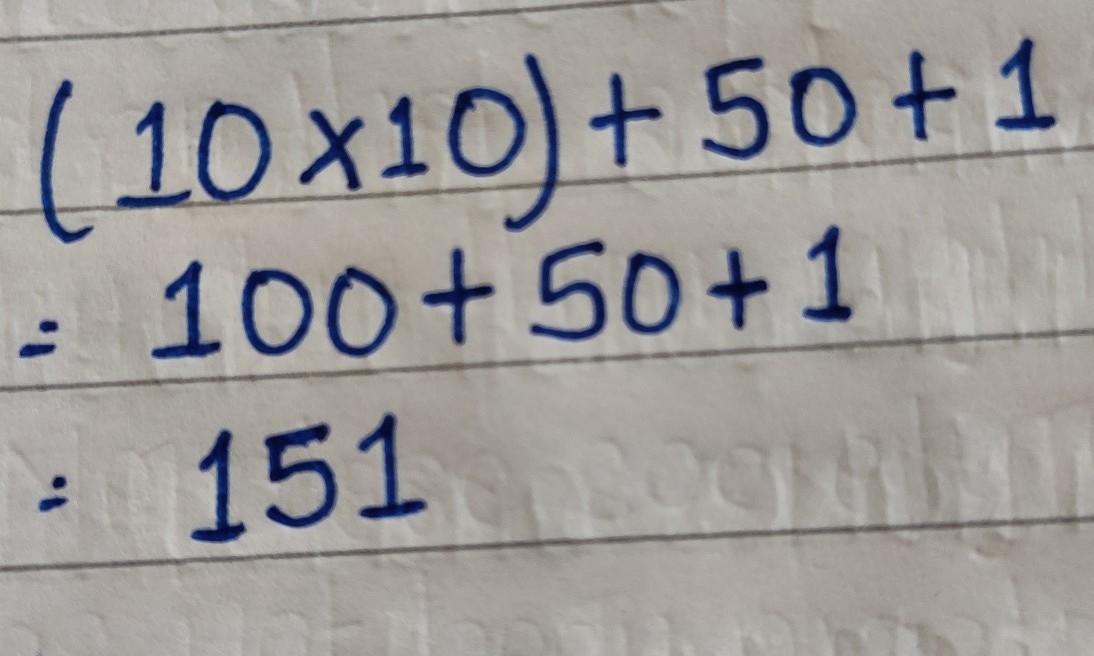 (10×10)+50+1
= 100+50+1
= 151